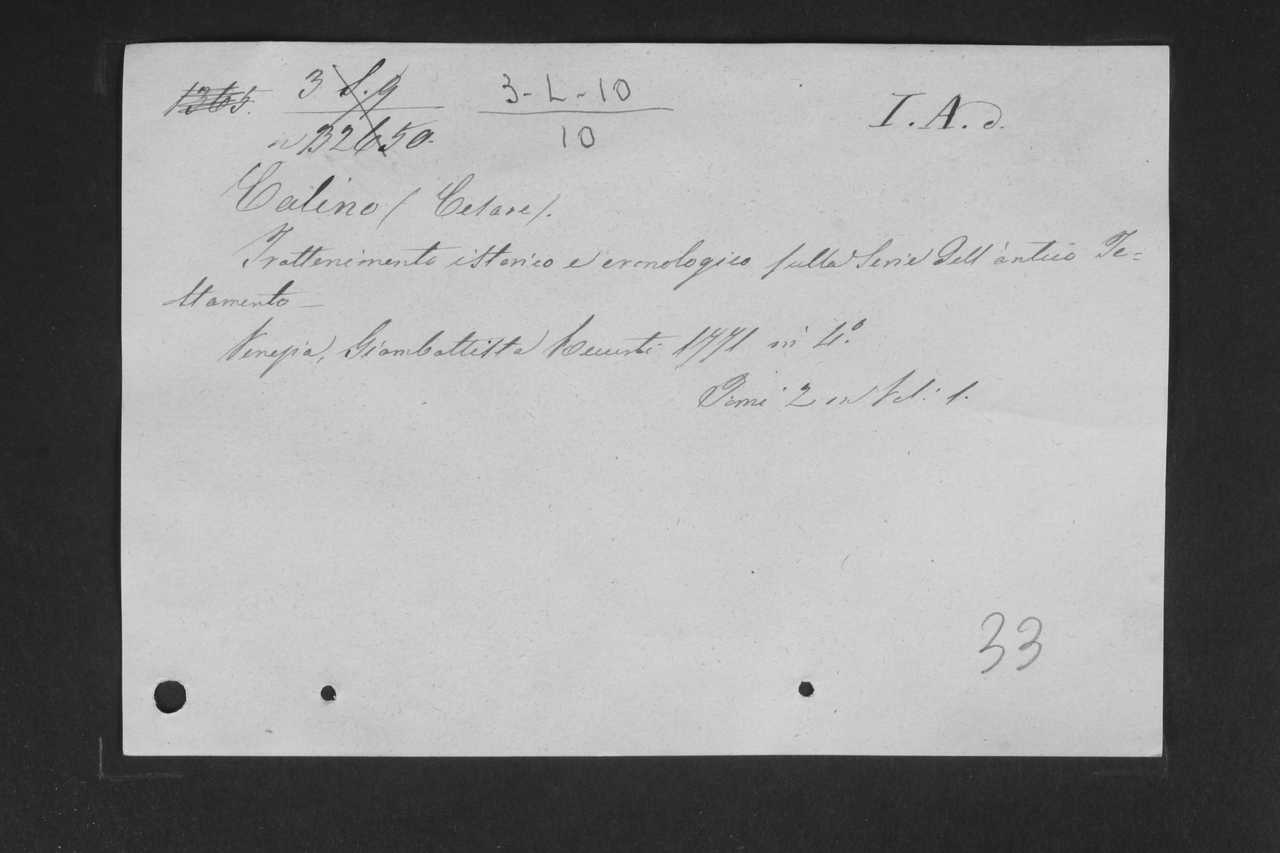 1365. 3 L.9 3-L-10 I.A.d.
n 32650. 10
Calino (Cesare).
Trattenimento istorico e cronologico sulla Serie dell'antico Te=
stamento_
Venezia, Giambattista Recurti 1771 in 4.°
Tomi 2 in Vol: 1.
33